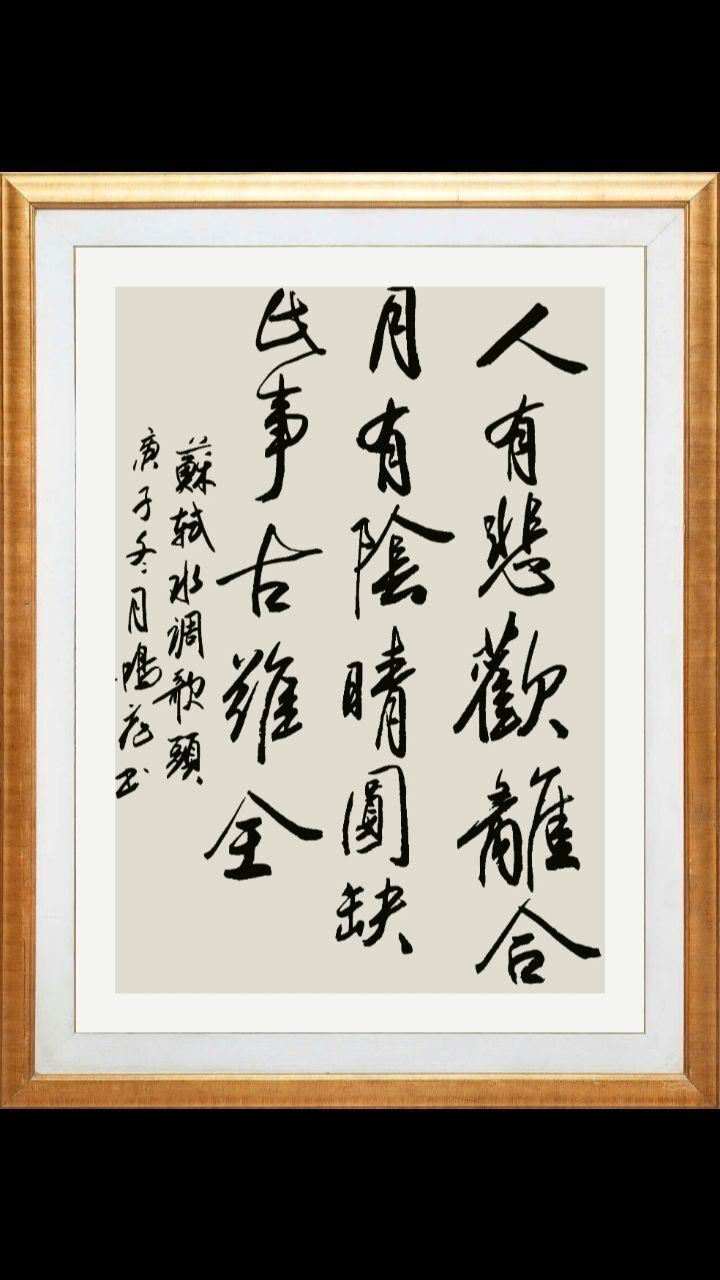 人有悲歡離合
月有陰晴圓缺
此事古難全
蘇軾水調歌頭
庚子冬月鴻